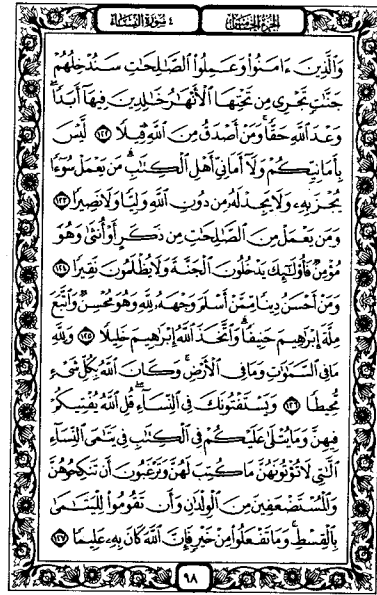 الجزء الخامس
٤ سورة النساء
وَالَّذِينَ ءَامَنُوا۟ وَعَمِلُوا۟ الصَّـٰلِحَـٰتِ سَنُدْخِلُهُمْ
جَنَّـٰتٍ تَجْرِى مِن تَحْتِهَا الْأَنْهَـٰرُ خَـٰلِدِينَ فِيهَآ أَبَدًا ۖ
وَعْدَ اللَّهِ حَقًّا ۚ وَمَنْ أَصْدَقُ مِنَ اللَّهِ قِيلًا ١٢٢ لَّيْسَ
بِأَمَانِيِّكُمْ وَلَآ أَمَانِىِّ أَهْلِ الْكِتَـٰبِ ۗ مَن يَعْمَلْ سُوٓءًا
يُجْزَ بِهِۦ وَلَا يَجِدْ لَهُۥ مِن دُونِ اللَّهِ وَلِيًّا وَلَا نَصِيرًا ١٢٣
وَمَن يَعْمَلْ مِنَ الصَّـٰلِحَـٰتِ مِن ذَكَرٍ أَوْ أُنثَىٰ وَهُوَ
مُؤْمِنٌ فَأُو۟لَـٰٓئِكَ يَدْخُلُونَ الْجَنَّةَ وَلَا يُظْلَمُونَ نَقِيرًا ١٢٤
وَمَنْ أَحْسَنُ دِينًا مِّمَّنْ أَسْلَمَ وَجْهَهُۥ لِلَّهِ وَهُوَ مُحْسِنٌ وَاتَّبَعَ
مِلَّةَ إِبْرَٰهِيمَ حَنِيفًا ۗ وَاتَّخَذَ اللَّهُ إِبْرَٰهِيمَ خَلِيلًا ١٢٥ وَلِلَّهِ
مَا فِى السَّمَـٰوَٰتِ وَمَا فِى الْأَرْضِ ۚ وَكَانَ اللَّهُ بِكُلِّ شَىْءٍ
مُّحِيطًا ١٢٦ وَيَسْتَفْتُونَكَ فِى النِّسَآءِ ۖ قُلِ اللَّهُ يُفْتِيكُمْ
فِيهِنَّ وَمَا يُتْلَىٰ عَلَيْكُمْ فِى الْكِتَـٰبِ فِى يَتَـٰمَى النِّسَآءِ
الَّـٰتِى لَا تُؤْتُونَهُنَّ مَا كُتِبَ لَهُنَّ وَتَرْغَبُونَ أَن تَنكِحُوهُنَّ
وَالْمُسْتَضْعَفِينَ مِنَ الْوِلْدَٰنِ وَأَن تَقُومُوا۟ لِلْيَتَـٰمَىٰ
بِالْقِسْطِ ۚ وَمَا تَفْعَلُوا۟ مِنْ خَيْرٍ فَإِنَّ اللَّهَ كَانَ بِهِۦ عَلِيمًا ١٢٧
٩٨